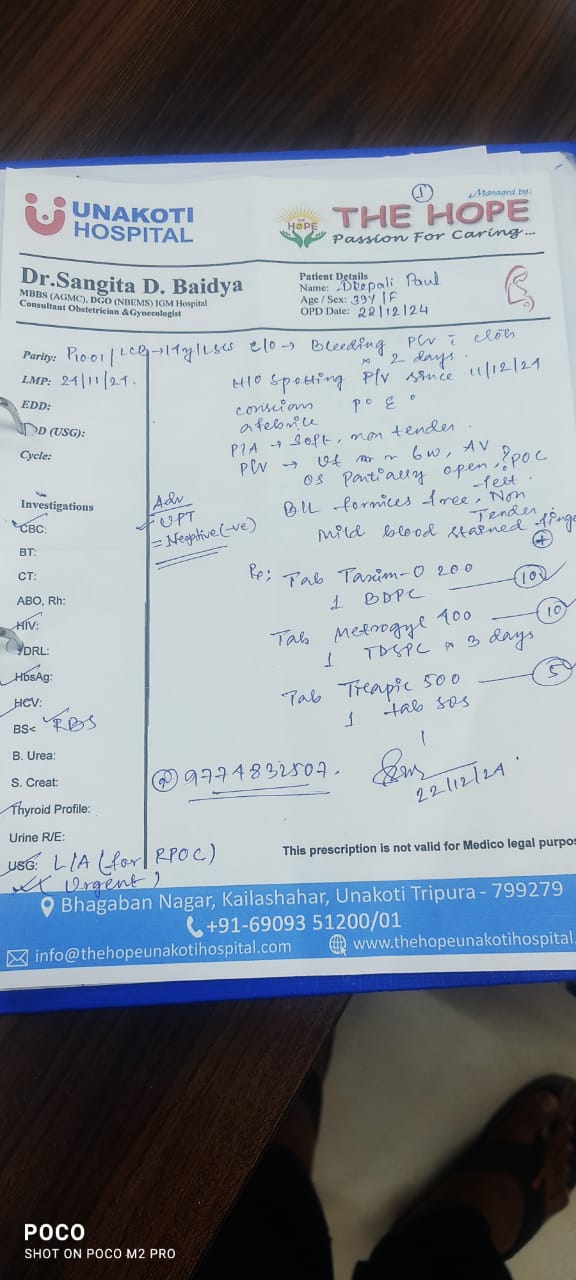 UNAKOTI HOSPITAL
1
Managed by:
THE HOPE
THE HOPE
Passion For Caring...
Dr.Sangita D. Baidya
MBBS (AGMC), DGO (NBEMS) IGM Hospital
Consultant Obstetrician &Gynecologist
Patient Details
Name: Deepali Paul
Age / Sex: 39Y/F
OPD Date: 22/12/24
Parity: P1001/LCB→ /LSCS
LMP: 21/11/24.
EDD:
(USG):
Cycle:
C/O → Bleeding P/V
× 2 days.
H/O Spotting P/V since 11/12/24
afebrile
P/A → Soft, non tender.
P/V → Ut 6w, AV
OS Partially open, ?POC
felt.
B/L fornices free, Non
Tender
Mild blood stained finger
+
Investigations
CBC:
BT:
CT:
ABO, Rh:
HIV:
VDRL:
HbsAg:
HCV:
BS< RBS
B. Urea:
S. Creat:
Thyroid Profile:
Urine R/E:
USG: L/A (for RPOC)
(Urgent)
Adv
UPT
= Negative (-ve)
Tab Taxim-O 200 10
1 BDPC
Tab Metrogyl 400 10
1 TDSPC × 3 days
Tab Treapic 500 5
1 tab SOS
9774832507.
22/12/24.
This prescription is not valid for Medico legal purpos
Bhagaban Nagar, Kailashahar, Unakoti Tripura - 799279
+91-69093 51200/01
info@thehopeunakotihospital.com
www.thehopeunakotihospital.
POCO
SHOT ON POCO M2 PRO